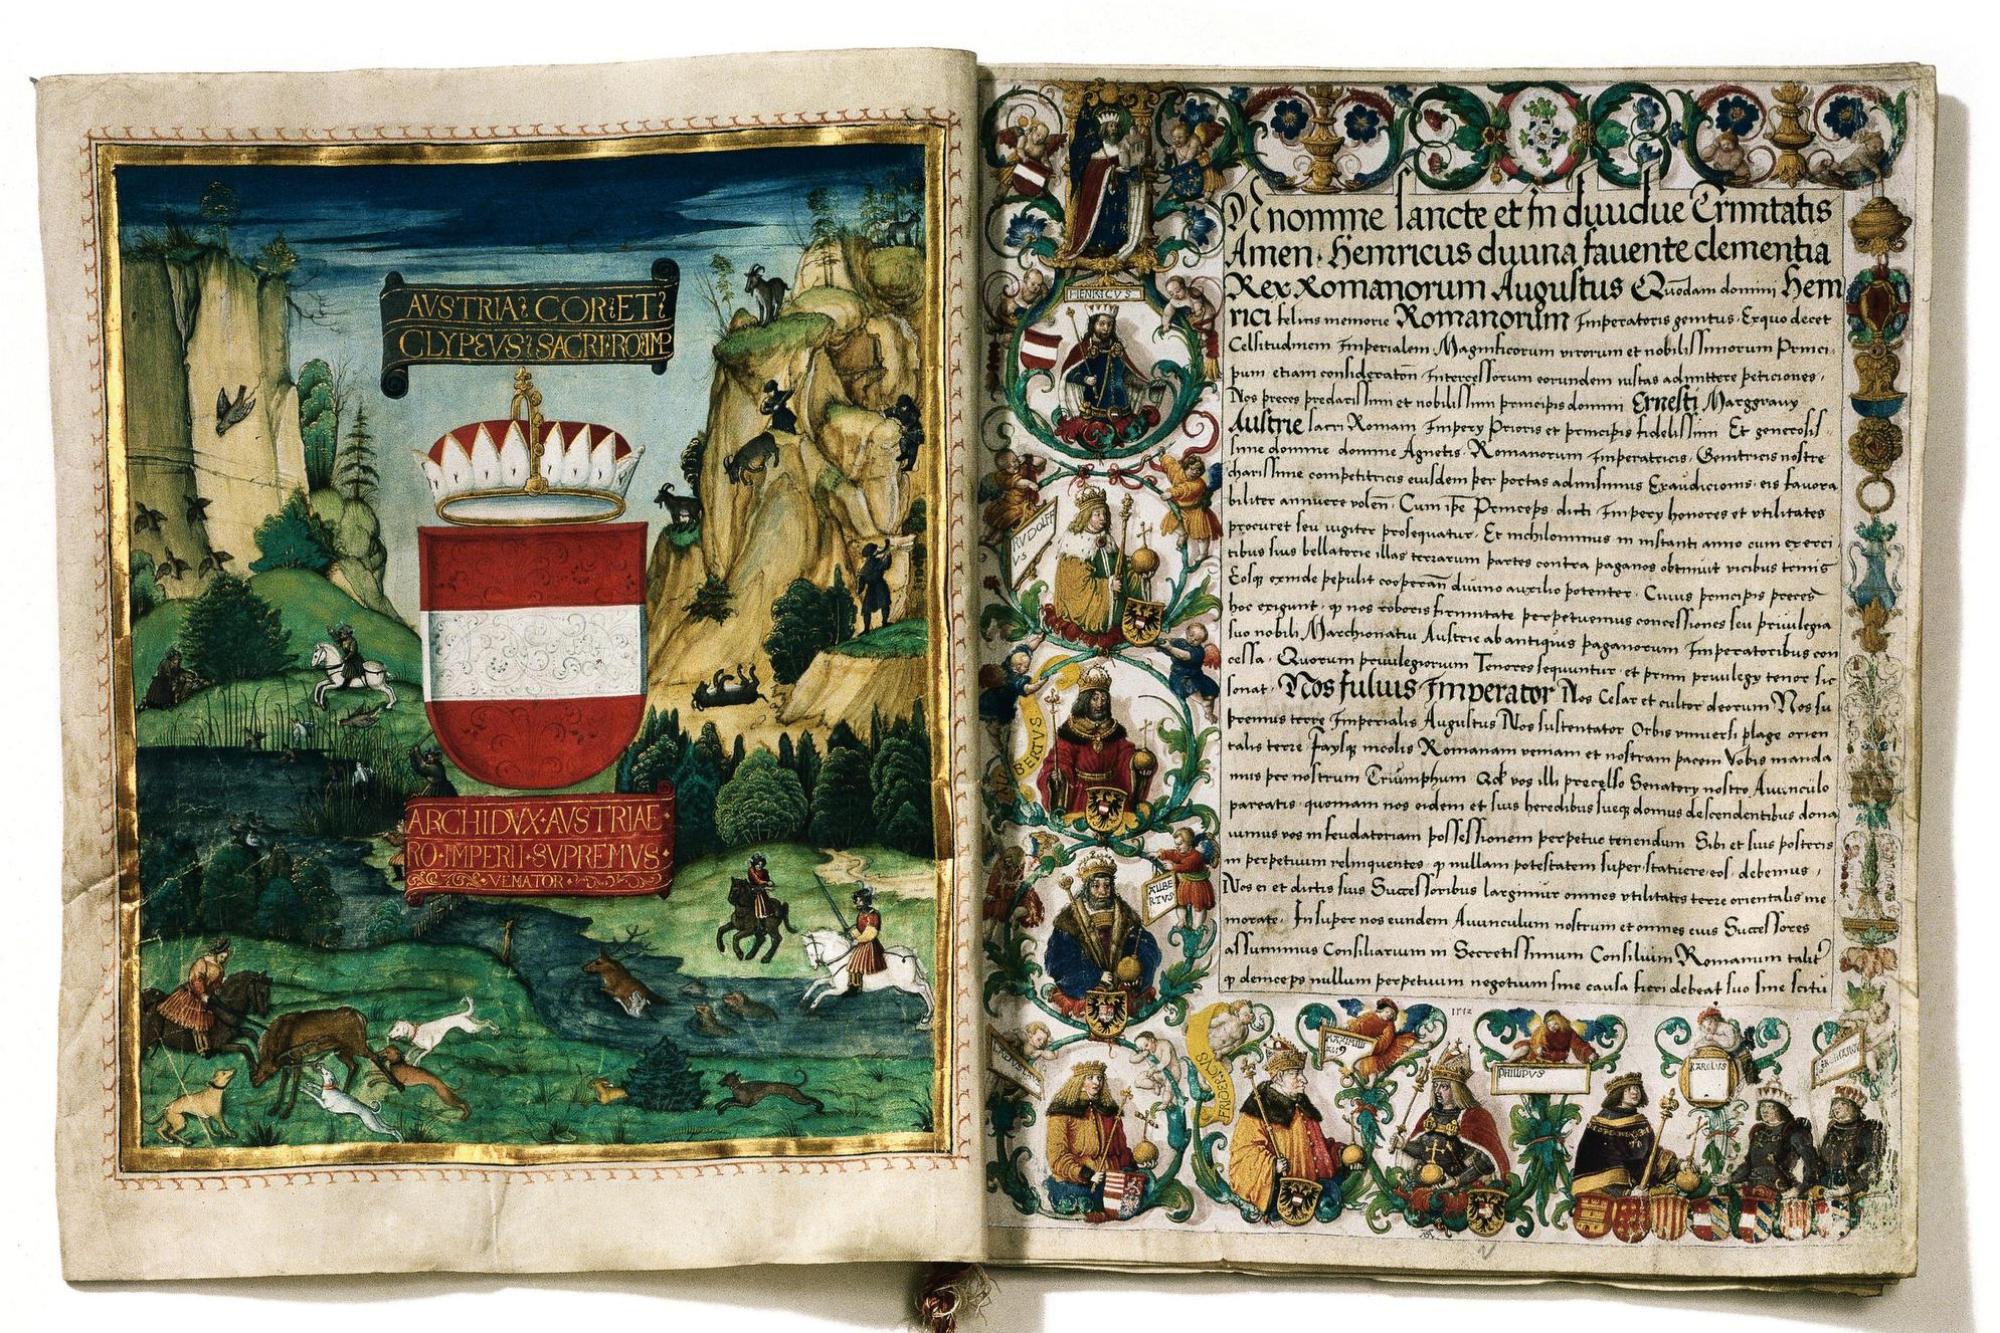 AVSTRIA COR ET
CLYPEVS SACRI RO IMP
ARCHIDVX·AVSTRIAE·
RO·IMPERII·SVPREMVS·
·VENATOR·
HENRICVS
RVDOLFF
VS
ALBERTVS
ALBE
RTVS
FRIDERICVS
MAXIMILI
PHILIPVS
KAROLVS
In nomine sancte et In diuidue Trinitatis
Amen · Heinricus diuina fauente clementia
Rex Romanorum Augustus Quondam domini Hein
rici felicis memorie Romanorum Imperatoris genitus · Ex quo decet
Celsitudinem Imperialem Magnificorum virorum et nobilissimorum Princi
pum etiam consideratōn Intercessorum eorundem iustas admittere peticiones ·
Nos preces preclarissimi et nobilissimi principis domini Ernesti Marggrauy
Austrie sacri Romani Impery Prioris et principis fidelissimi Et generosis
sime domine domine Agnetis · Romanorum Imperatricis · Genitricis nostre
charissime competitricis eiusdem per portas admisimus Exaudicionis · eis fauora
biliter annuere volen̄ · Cum ipe Princeps · dicti Impery honores et vtilitates
procuret seu iugiter prosequatur · Et nichilominus in instanti anno cum exerci
tibus suis bellatorie illas terrarum partes contra paganos obtinuit vicibus ternis
Eosq exinde pepulit cooperan̄ diuino auxilio potenter · Cuius principis preces
hoc exigunt · q nos roboris firmitate perpetuemus concessiones seu priuilegia
suo nobili Marchionatui Austrie ab antiquis paganorum Imperatoribus con
cessa · Quorum priuilegiorum Tenores sequuntur · et primi priuilegy tenor sic
sonat · Nos Iulius Imperator Nos Cesar et cultor deorum Nos su
premus terre Imperialis Augustus Nos sustentator Orbis vniuersi plage orien
talis terre · Jaysq incolis Romanam veniam et nostram pacem Vobis manda
mus per nostrum Triumphum Qd vos illi precelso Senatory nostro Auunculo
pareatis · quoniam nos eidem et suis heredibus sueq domus descendentibus dona
uimus vos in feudatoriam possessionem perpetue tenendum Sibi et suis posteris
in perpetuum relinquentes · q nullam potestatem super statuere eos · debemus ·
Nos ei et dictis suis Successoribus largimur omnes vtilitates terre orientalis me
morate · Insuper nos eundem Auunculum nostrum et omnes eius Successores
assummus Consiliarium in Secretissimum Consilium Romanum talit̄
q deinceps nullum perpetuum negotium sine causa fieri debeat suo sine scitu
1512